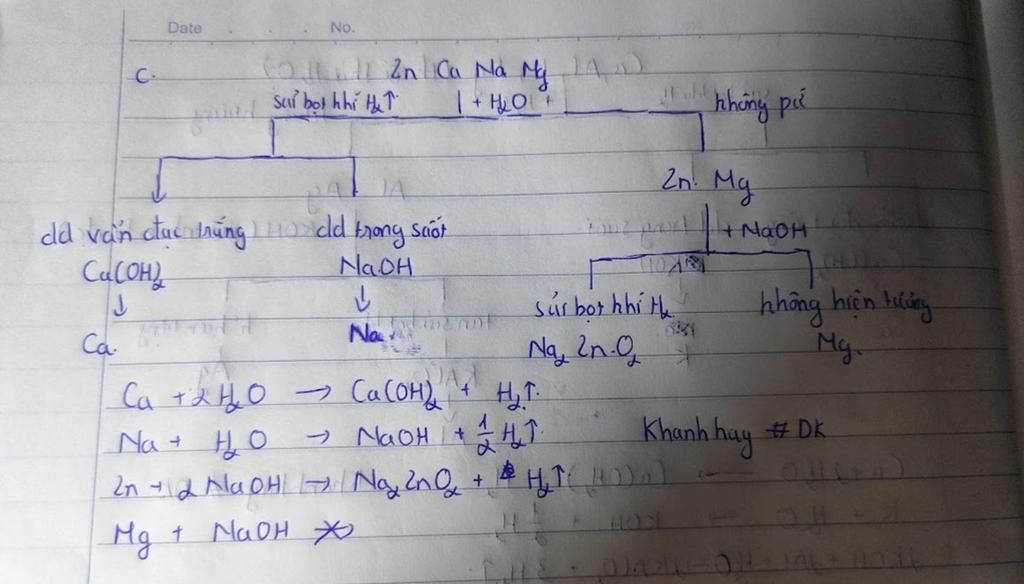 Date . . . No.
C. Zn Ca Na Mg
sủi bọt khí H₂↑ + H₂O không pứ
Zn Mg
dd vẩn đục trắng dd trong suốt + NaOH
Ca(OH)₂ NaOH
↓ ↓ sủi bọt khí H₂ không hiện tượng
Ca. Na Na₂ZnO₂ Mg.
Ca + 2H₂O → Ca(OH)₂ + H₂↑.
Na + H₂O → NaOH + 1/2 H₂↑ Khanhhay # DK
Zn + 2NaOH → Na₂ZnO₂ + H₂↑.
Mg + NaOH ↛